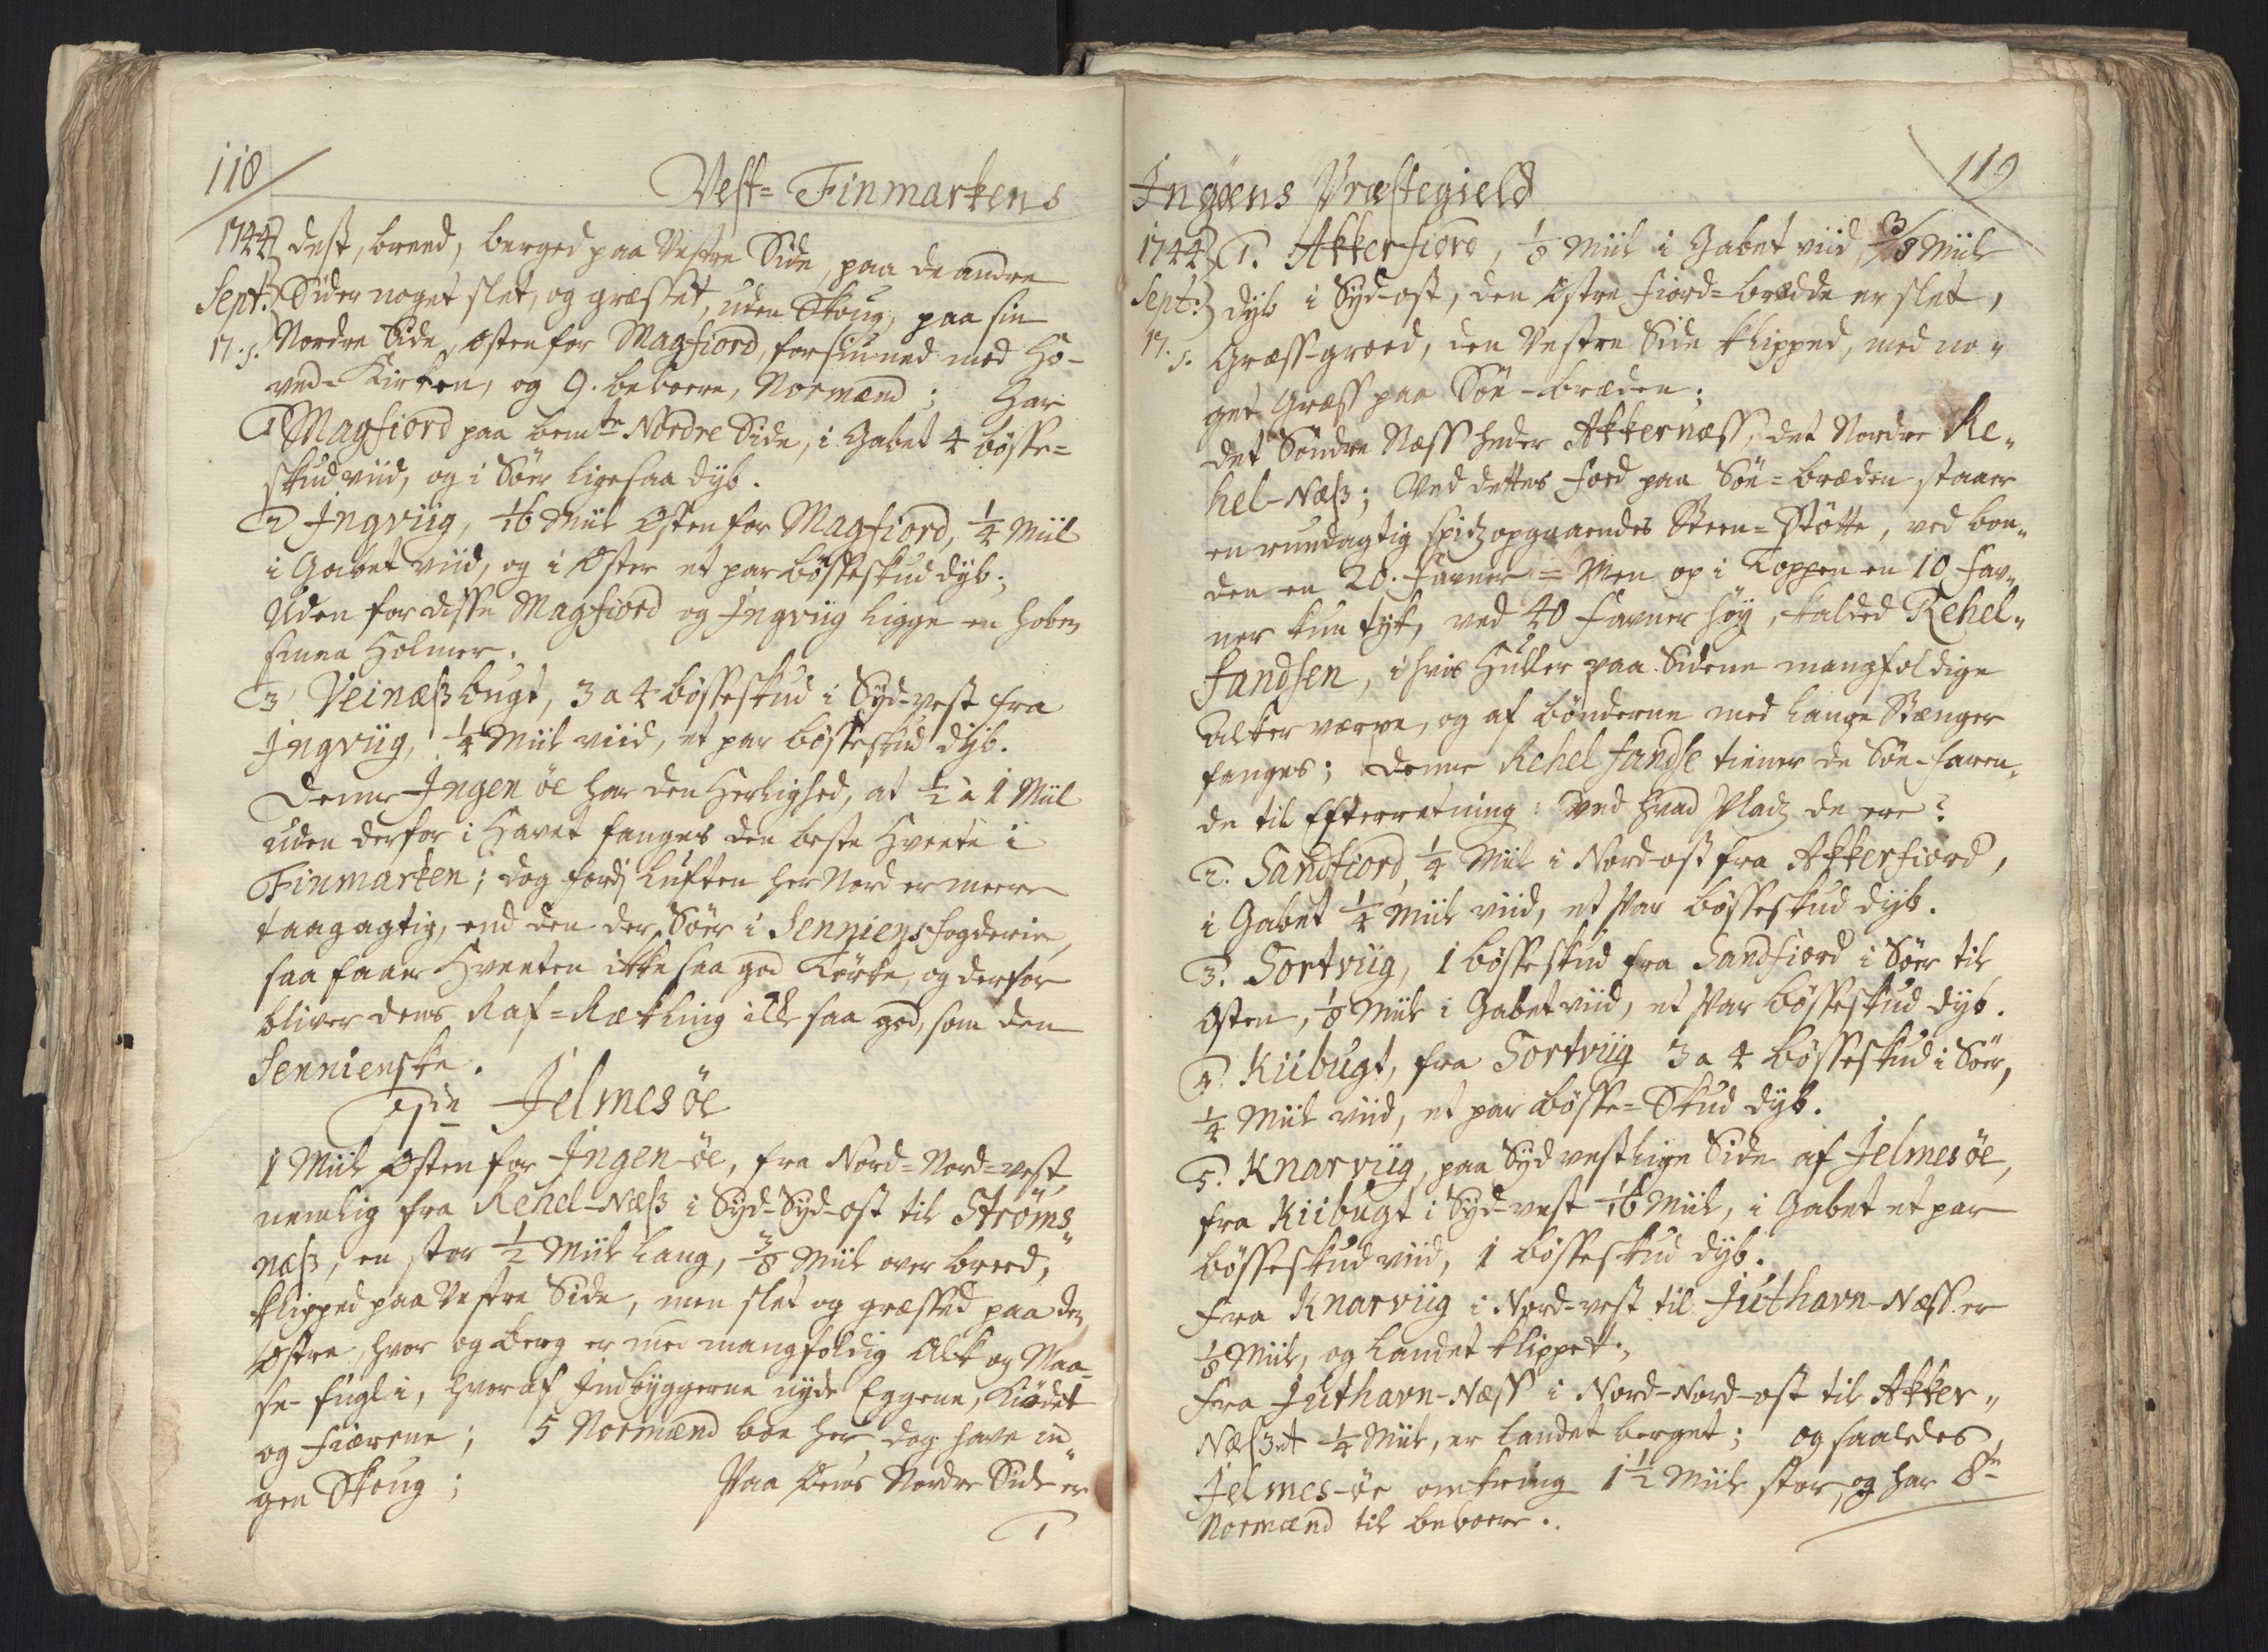 118
Vest-Finmarkens
1744 dest, breed, berged paa Vestre Side, paa de andre
Sept: Sider noget slet, og græsset, uden Skoug, paa sin
17. s. Nordre Side, østen for Magfiord, forsiuned med Ho-
ved-Kirken, og 9. beboere, Normænd; Har
1 Magfiord paa bemte Nordre Side, i Gabet 4 bösse-
skud viid, og i Söer ligesaa dyb.
2 Ingviig, 1/16 Miil Østen for Magfiord, 1/4 Miil
i Gabet viid, og i Øster et par bösseskud dyb;
Uden for disse Magfiord og Ingviig ligge en hoben
smaa Holmer.
3 Veinæsbugt, 3 a 4 bösseskud i Syd-vest fra
Ingviig, 1/4 Miil viid, et par bösseskud dyb.
Denne Ingen öe har den Herlighed, at 1/2 a 1 Miil
uden derfor i Havet fanges den beste Hveete i
Finmarken; dog fordj Luften her Nord er meere
taagagtig, end den der Söer i Senniens fogderie,
saa faaer Hveeten ikke saa god Törke, og derfor
bliver dens Raf-Rækling ikke saa god, som den
Sennienske.
Jelmesöe
1 Miil Østen for Ingen-öe, fra Nord-Nord-vest,
nemlig fra Rehel-Næs i Syd-Syd-ost til Ströms
næs, en stor 1/2 Miil lang, 3/8 Miil over breed,
klipped paa Vestre Side, men slet og græssed paa den
Østre, hvor og Berg er med mangfoldig Alk og Maa-
se-fugl i, hvoraf Indbyggerne nyde Eggene, Kiödet
og Fiærene; 5 Normænd boe her, dog have in
gen Skoug; Paa Øens Nordre Side er
1
119
Ingøens Præstegield
1744 1. Akkerfiord, 1/8 Miil i Gabet viid, 3/8 Miil
Sept: dyb i Syd-ost, den østre fiord-bredde er slet,
17. s. Græss-groed, den Vestre Side klipped, med no
get Græss paa Söe-bræden;
det Söndre Næss heder Akkernæss, det Nordre Re
hel-Næs; Ved dettes Foed paa Söe-bræden staaer
en rundagtig spidz opgaaendes Steen-Stötte, ved bon
den en 20. Favner = Men op i Toppen en 10 Fav
ner kun tyk, ved 40 Favner höy, kalded Rehel
fandsen, i hvis Huller paa Sidene mangfoldige
Alker værpe, og af bönderne med lange Stænger
fanges; denne Rehel fandse tiener de Söe-faren
de til Efterretning: Ved hvad Pladz de ere?
2. Sandfiord, 1/4 Miil i Nord-ost fra Akkerfiord,
i Gabet 1/4 Miil viid, et Par bösseskud dyb.
3. Sortviig, 1 bösseskud fra Sandfiord i Söer til
Østen, 1/8 Miil i Gabet viid, et Par bösseskud dyb.
4. Kiibugt, fra Sortviig 3 a 4 bösseskud i Söer,
1/4 Miil viid, et par bösse-skud dyb.
5. Knarviig, paa Sydvestlige Side af Jelmesöe,
fra Kiibugt i Syd-vest 1/16 Miil, i Gabet et par
bösseskud viid, 1 bösseskud dyb.
Fra Knarviig i Nord-vest til Juthavn-Næss er
1/8 Miil, og Landet klippet;
Fra Juthavn-Næss i Nord-Nord-ost til Akker
Næsset 1/4 Miil, er Landet berget; og saaledes
Jelmes-öe omkring 1 1/2 Miil stor, og har 8te
Normænd til beboere.